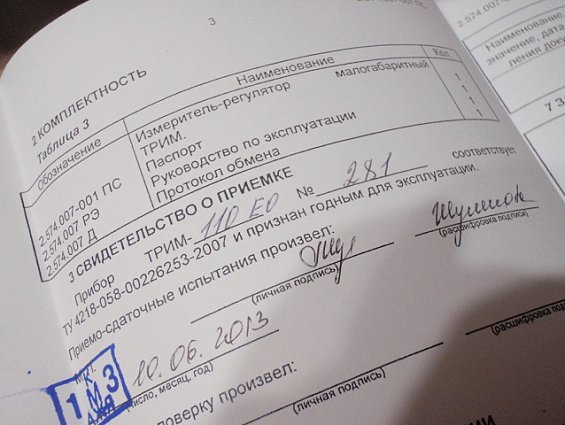 2.574.007-001 ПС
3
2 КОМПЛЕКТНОСТЬ
Таблица 3
Обозначение Наименование Кол
2.574.007-001 ПС Измеритель-регулятор малогабаритный ТРИМ. 1
Паспорт 1
2.574.007 РЭ Руководство по эксплуатации 1
2.574.007 Д Протокол обмена 1
3 СВИДЕТЕЛЬСТВО О ПРИЕМКЕ
Прибор ТРИМ- 110 ЕО № 281 соответствует
ТУ 4218-058-00226253-2007 и признан годным для эксплуатации.
Приемо-сдаточные испытания произвел:
(личная подпись) (расшифровка подписи)
10.06.2013
(число, месяц, год)
оверку произвел:
(личная подпись) (расшифровка под
1 М 3
2.574.007
Наименование,
значение, дата
ления доку
7 З